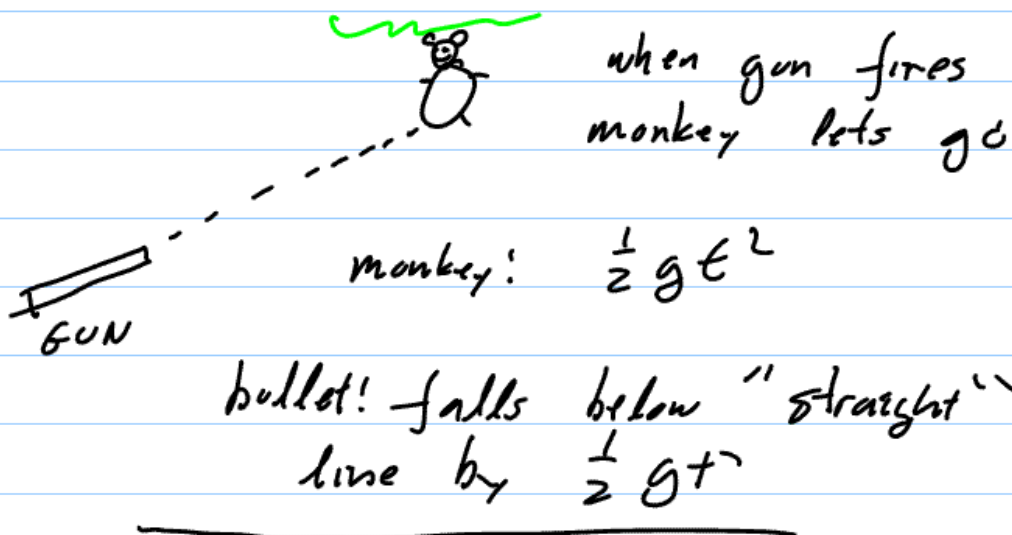 when gun fires
monkey lets go
monkey: 1/2 g t²
GUN
bullet! falls below "straight"
line by 1/2 gt²